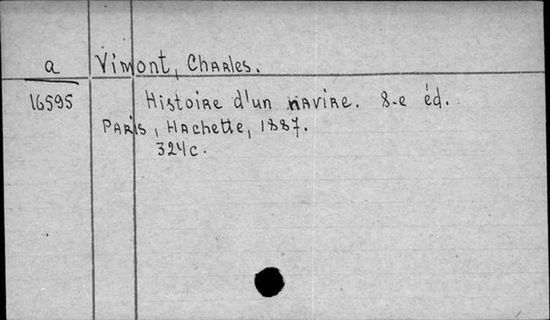 a Vimont, Charles.
16595 Histoire d'un navire. 8-e éd.
Paris, Hachette, 1887.
324c.